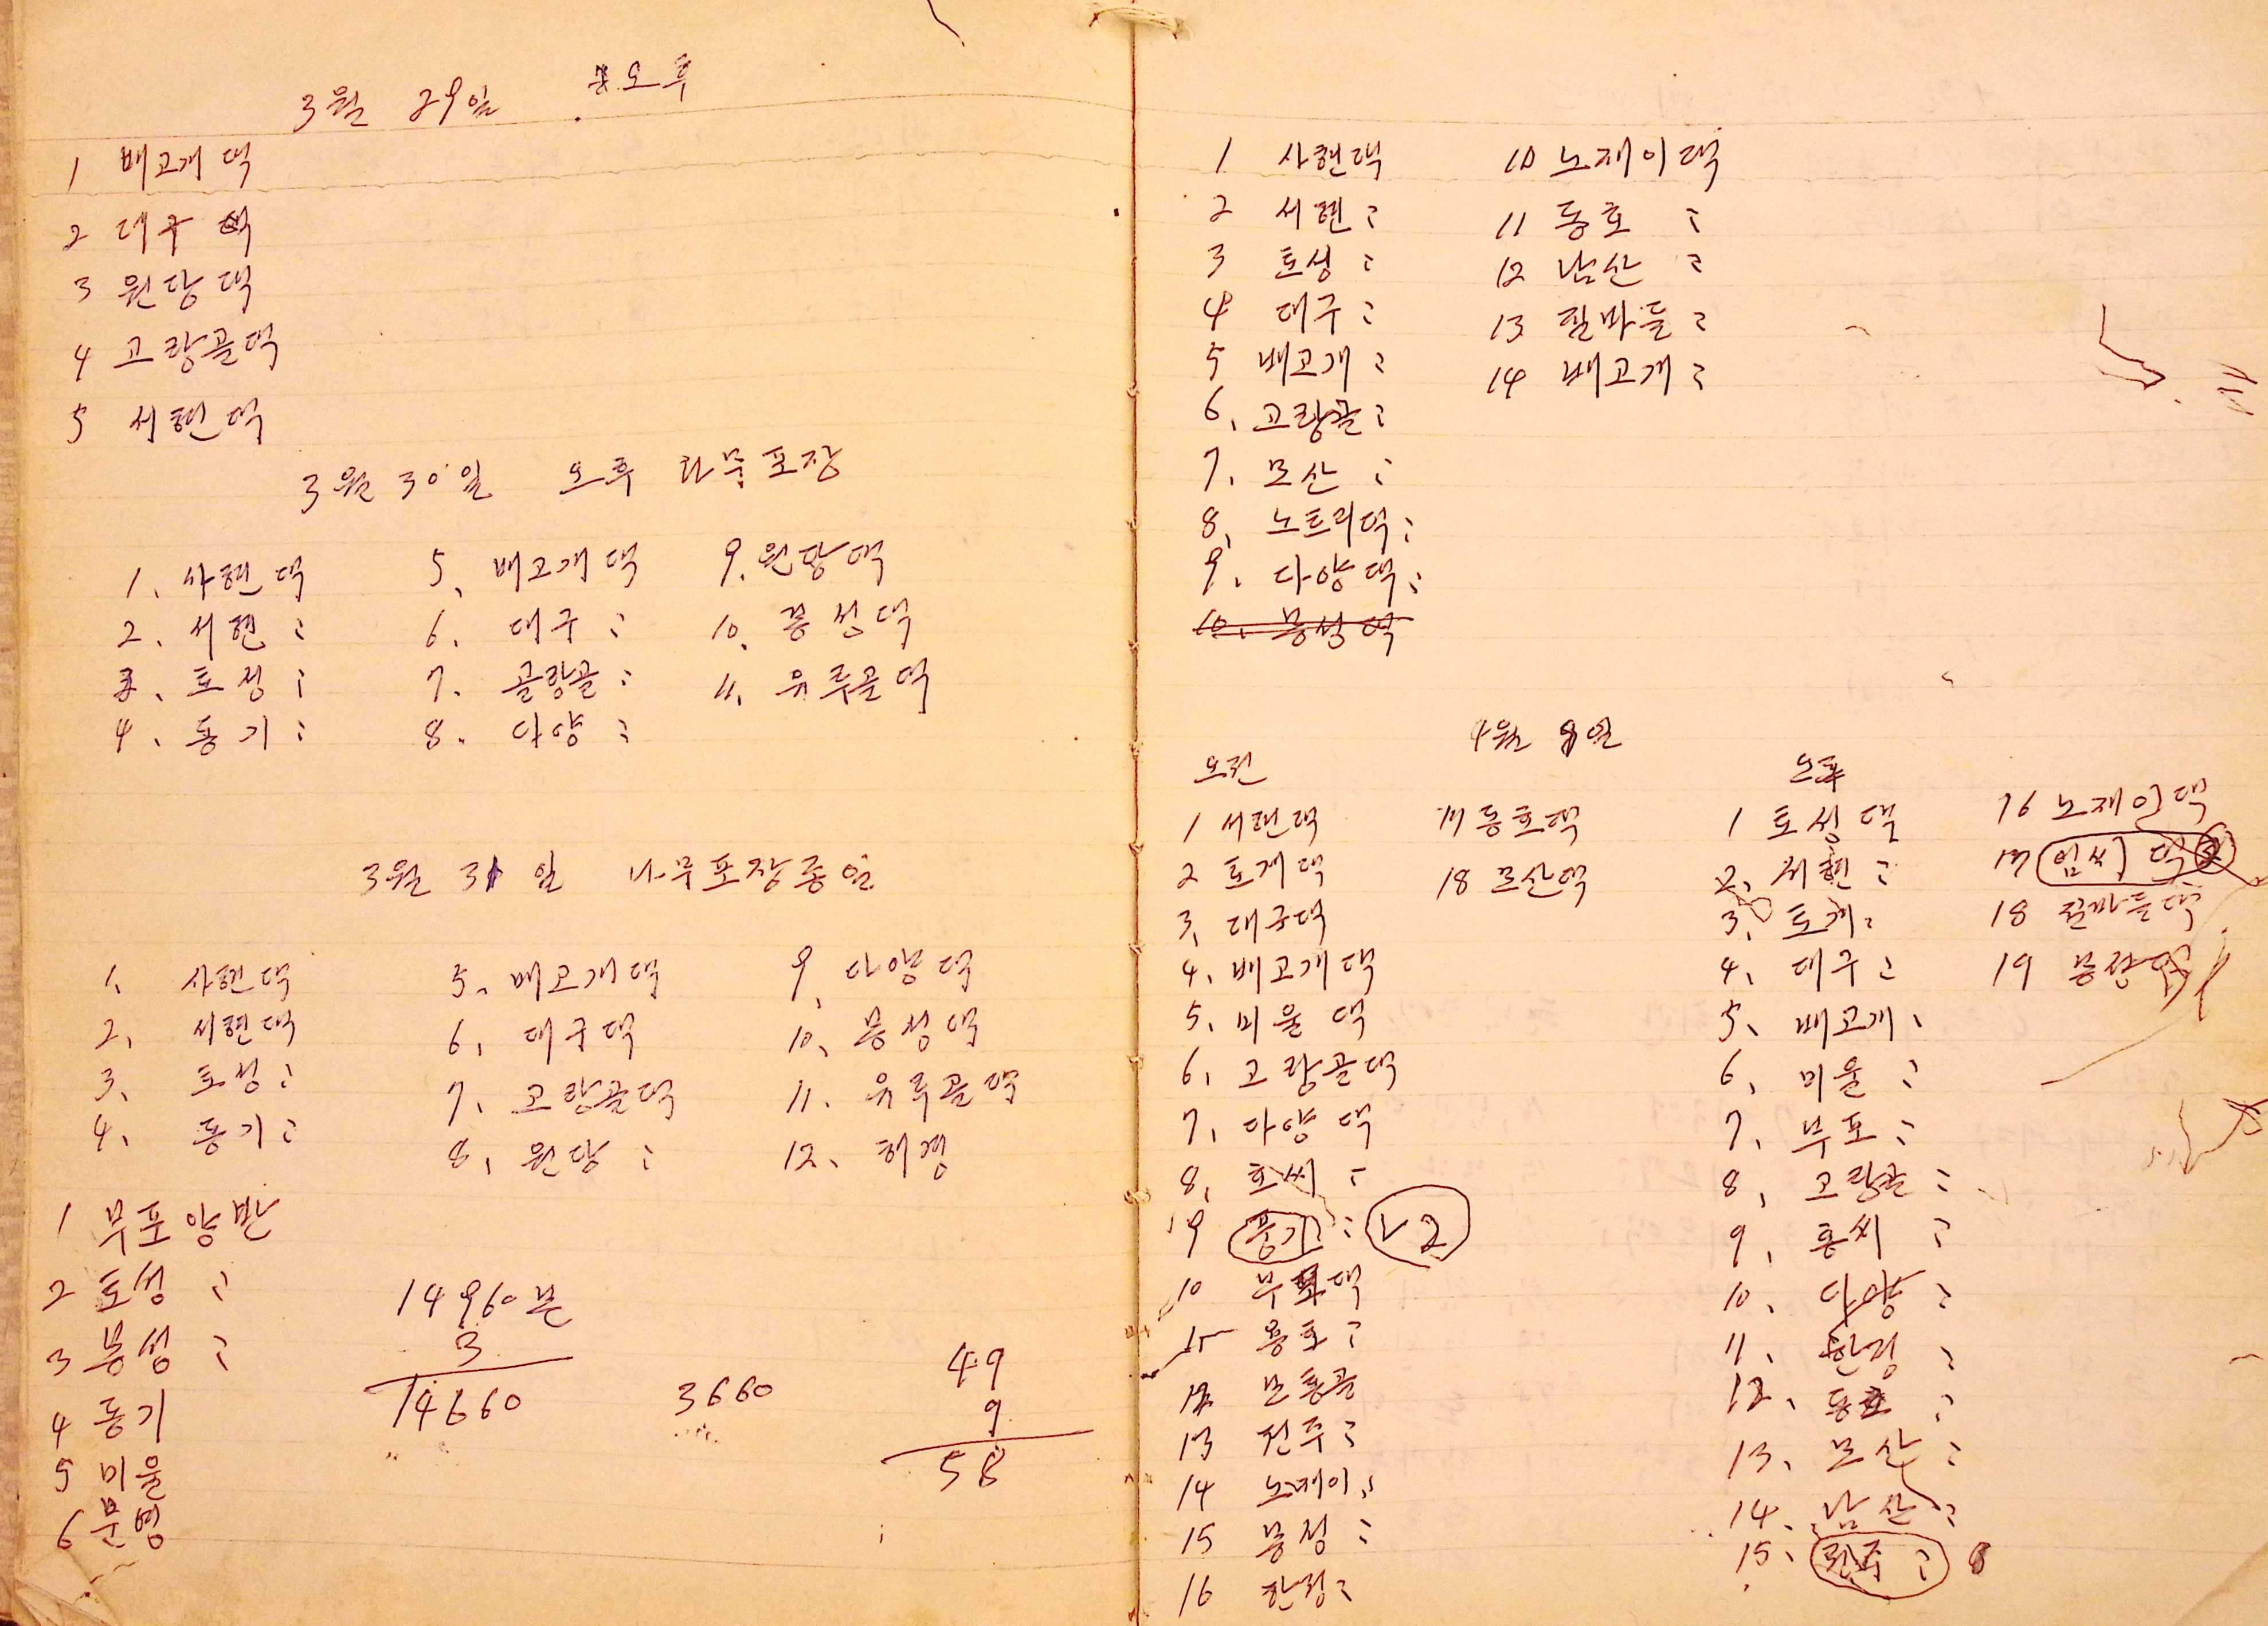 3월 29일 오후
1 배고개댁
2 대구댁
3 원당댁
4 고랑골댁
5 서현댁
3월 30일 오후 나무포장
1. 사현댁 5. 배고개댁 9. 원당댁
2. 서현 〃 6. 대구 〃 10. 봉성댁
3. 토성 〃 7. 골랑골 〃 11. 유루골댁
4. 동기 〃 8. 다양 〃
3월 31일 나무포장종일
1. 사현댁 5. 배고개댁 9. 다양댁
2. 서현댁 6. 대구댁 10. 봉성댁
3. 토성 〃 7. 고랑골댁 11. 유루골댁
4. 동기 〃 8. 원당 〃 12. 해경
1 부포양반
2 토성 〃
3 봉성 〃
4 동기
5 미울
6 분형
14960본
3
14660 3660
49
9
58
1 사현댁 10 노재이댁
2 서현 〃 11 동호 〃
3 토성 〃 12 남산 〃
4 대구 〃 13 질마들 〃
5 배고개 〃 14 배고개 〃
6. 고랑골 〃
7. 모산 〃
8. 노트리댁 〃
9. 다양댁 〃
10. 봉성댁
4월 일
오전
1 서현댁 17 동호댁
2 토계댁 18 모산댁
3. 대구댁
4. 배고개댁
5. 미울댁
6. 고랑골댁
7. 다양댁
8. 호씨 〃
9 풍기 〃 2
10 부포댁
11 용호 〃
12 모통골
13 전주 〃
14 노재이 〃
15 봉성 〃
16 한정 〃
오후
1 토성댁 16 노재이댁
2. 서현 〃 17 임씨댁
3. 토계 〃 18 질마들댁
4. 대구 〃 19 봉성댁
5. 배고개 〃
6. 미울 〃
7. 부포 〃
8. 고랑골 〃
9. 홍씨 〃
10. 다양 〃
11. 한정 〃
12. 동호 〃
13. 모산 〃
14. 남산 〃
15. 전주 〃 8